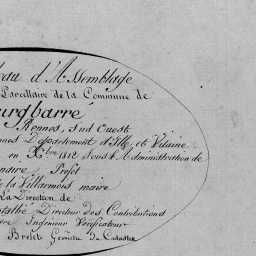 eau d'Assemblage
Parcellaire de la Commune de
urgbarré
Rennes, Sud Ouest
nes Département d'Ille et Vilaine
en Xbre 1812 Sous l'Administration de
naire Préfet
de la Villarmois maire
La Direction de
Directeur des Contributions
Ingénieur Vérificateur
Brélet Géomètre du Cadastre